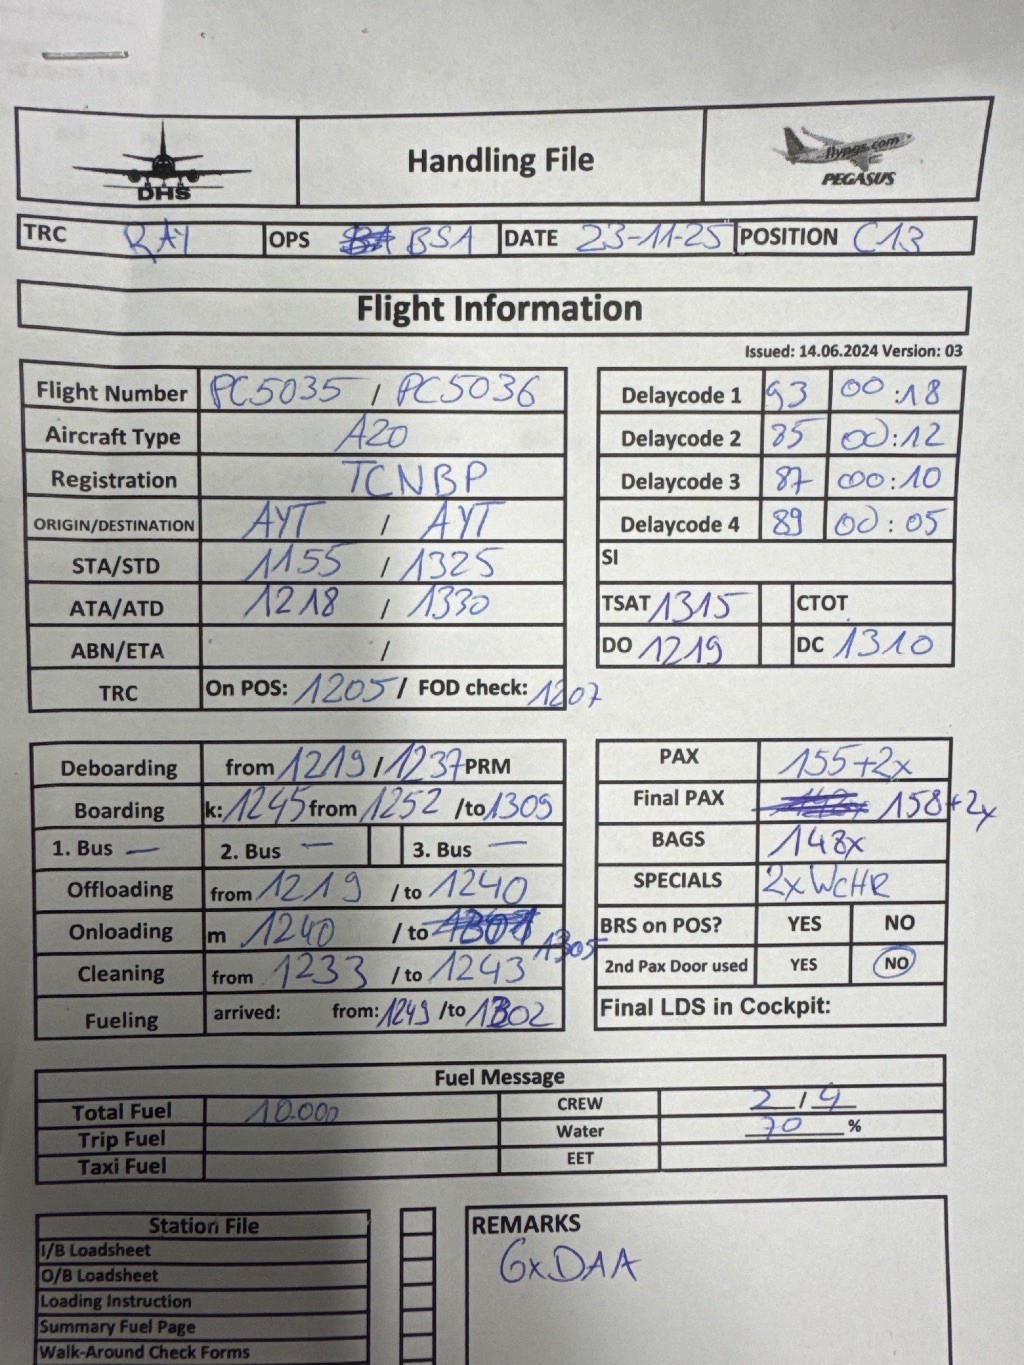 DHS
Handling File
flypgs.com
PEGASUS
TRC RAY OPS BSA DATE 23-11-25 POSITION C13
Flight Information
Issued: 14.06.2024 Version: 03
Flight Number PC5035 / PC5036
Aircraft Type A20
Registration TCNBP
ORIGIN/DESTINATION AYT / AYT
STA/STD 1155 / 1325
ATA/ATD 1218 / 1330
ABN/ETA /
TRC On POS: 1205 / FOD check: 1207
Delaycode 1 93 00:18
Delaycode 2 85 00:12
Delaycode 3 87 00:10
Delaycode 4 89 00:05
SI
TSAT 1315 CTOT
DO 1219 DC 1310
Deboarding from 1219 / 1237 PRM
Boarding k: 1245 from 1252 /to 1309
1. Bus — 2. Bus — 3. Bus —
Offloading from 1219 / to 1240
Onloading m 1240 / to 1305
Cleaning from 1233 / to 1243
Fueling arrived: from: 1249 /to 1302
PAX 155+2x
Final PAX 158+2x
BAGS 148x
SPECIALS 2xWCHR
BRS on POS? YES NO
2nd Pax Door used YES NO
Final LDS in Cockpit:
Fuel Message
Total Fuel 10.000 CREW 2 / 4
Trip Fuel Water 70 %
Taxi Fuel EET
Station File
I/B Loadsheet
O/B Loadsheet
Loading Instruction
Summary Fuel Page
Walk-Around Check Forms
REMARKS
6xDAA